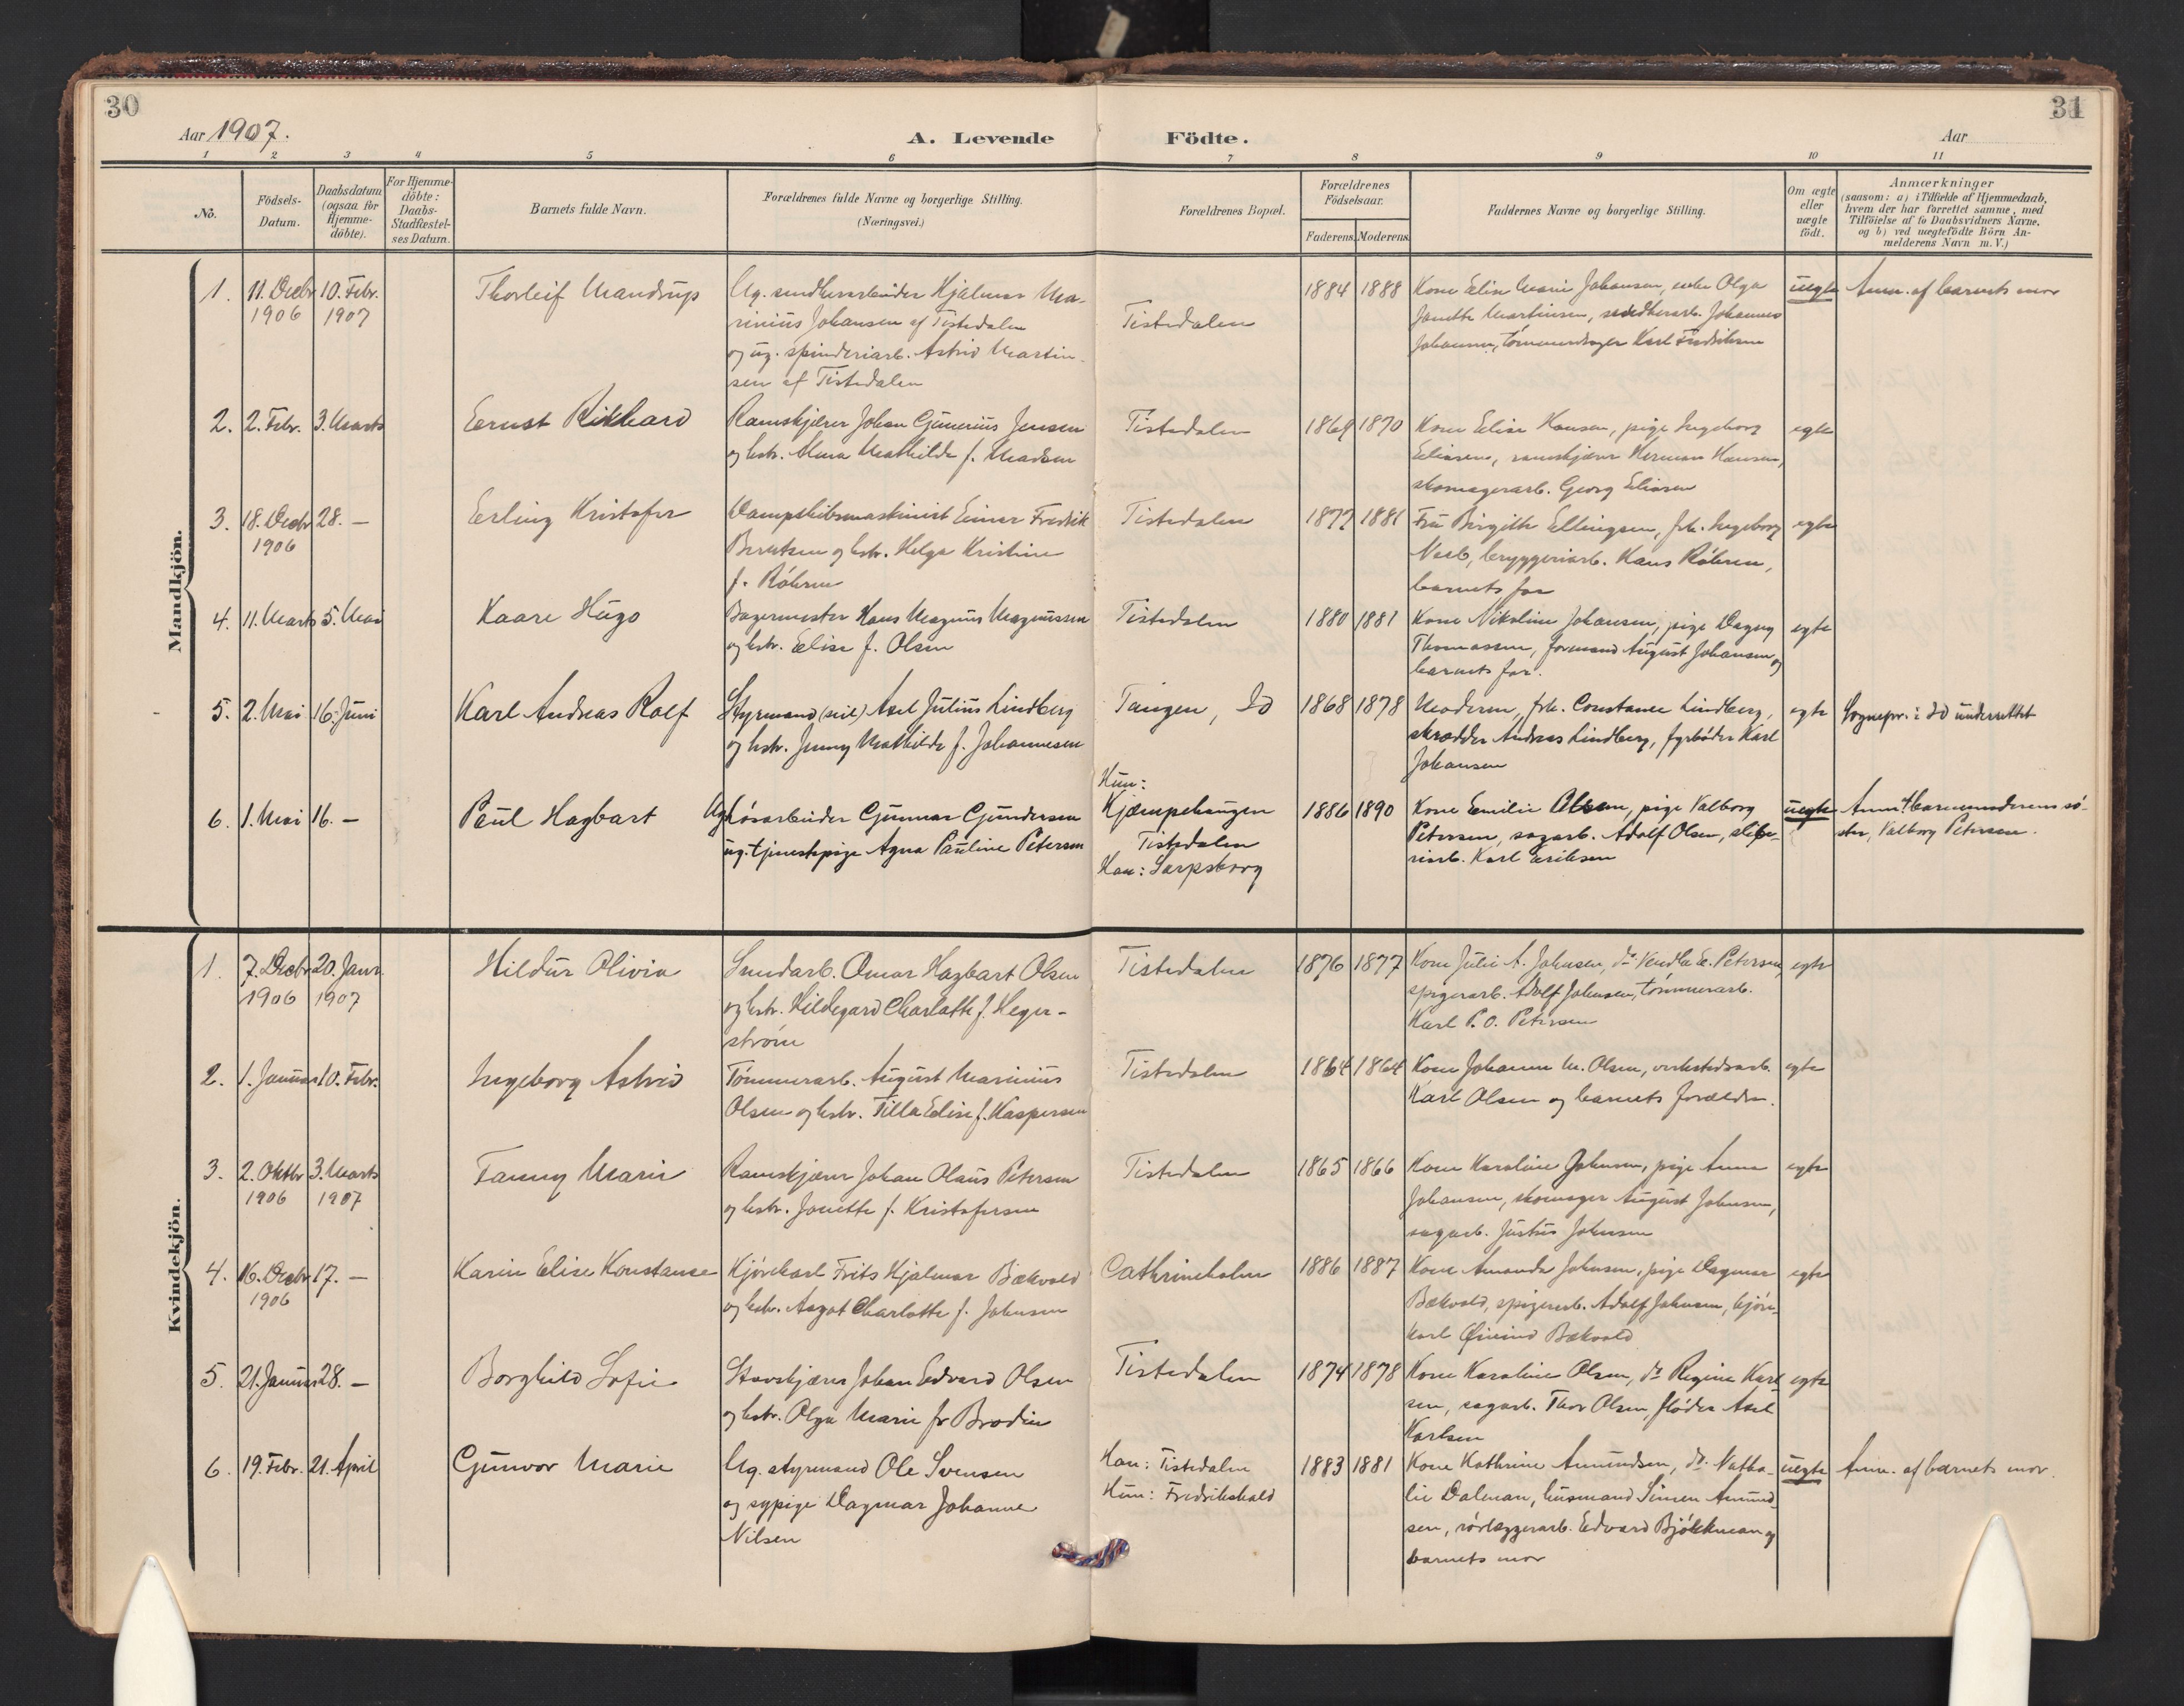 30
31
Aar 1907.
A. Levende Födte.
Aar
1 2 3 4 5 6 7 8 9 10 11
No.
Födsels-Datum.
Daabsdatum (ogsaa for Hjemme-döbte).
For Hjemme-döbte: Daabs-Stadfæstel-ses Datum.
Barnets fulde Navn.
Forældrenes fulde Navne og borgerlige Stilling. (Næringsvei.)
Forældrenes Bopæl.
Forældrenes Födselsaar.
Faderens. Moderens.
Faddernes Navne og borgerlige Stilling.
Om ægte eller uægte födt.
Anmærkninger
(saasom: a) i Tilfælde af Hjemmedaab,
hvem der har forrettet samme, med
Tilföielse af to Daabsvidners Navne,
og b) ved uægtefödte Börn An-
melderens Navn m. V.)
Mandkjön.
1. 11. Decbr 1906 10. Febr. 1907 Thorleif Mandrup
Ug. Hjalmar Ma-
rinius Johansen af Tistedalen
og ug. spinderiarb. Astrid Martin-
sen af Tistedalen
Tistedalen 1884 1888
Kone Elise Marie Johansen, Olga
Janette Martinsen, Johannes
Johansen, Karl Fredriksen
uegte Anm. af barnets mor
2. 2. Febr. 3. Marts Ernst Rikhard
Ramskjærer Johan Gunerius Jensen
og hstr. Alma Mathilde f. Madsen
Tistedalen 1869 1870
Kone Elise Hansen, pige Ingeborg
Eliasen, ramskjærer Herman Hansen,
skomagerarb. Georg Eliasen
egte
3. 18. Decbr 1906 28. — Erling Kristofer
Dampskibsmaskinist Einar Fredrik
Berntsen og hstr. Helga Kristine
f. Röhren
Tistedalen 1877 1881
Fru Birgitte Ellingsen, frk. Ingeborg
bryggeriarb. Hans Röhren,
barnets far
egte
4. 11. Marts 5. Mai Kaare Hugo
Bagermester Hans Magnus Magnussen
og hstr. Elise f. Olsen
Tistedalen 1880 1881
Kone Nikoline Johansen, pige Dagny
Thomassen, formand August Johansen og
barnets far.
egte
5. 2. Mai 16. Juni Karl Andreas Rolf
Styrmand (seil) Axel Julius Lindberg
og hstr. Jenny Mathilde f. Johannesen
Tangen, Id 1868 1878
Moderen, frk. Constance Lindberg,
skrædder Andreas Lindberg, fyrböder Karl
Johansen
egte Sognepr. i Id underrettet
6. 1. Mai 16. — Paul Hagbart
Ug. lösarbeider Gunnar Gundersen
ug. tjenestepige Agna Pauline Petersen
Hun:
Kjæmpehaugen
Tistedalen
Han: Sarpsborg
1886 1890
Kone Emilie Olsen, pige Valborg
Petersen, sagarb. Adolf Olsen, slibe-
riarb. Karl Eriksen
uegte Anm. af barnemoderens sö-
ster, Valborg Petersen.
Kvindekjön.
1. 7. Decbr 1906 20. Janr. 1907 Hildur Olivia
Smedarb. Omar Hagbart Olsen
og hstr. Hildegard Charlotte f. Heger-
ström
Tistedalen 1876 1877
Kone Julie A. Johnsen, do Vendla E. Petersen,
spigerarb. Adolf Johnsen, tömmerarb.
Karl P. O. Petersen
egte
2. 1. Januar 10. Febr. Ingeborg Astrid
Tömmerarb. August Marinius
Olsen og hstr. Tilla Elise f. Kaspersen
Tistedalen 1864 1864
Kone Johanne M. Olsen, verkstedsarb.
Karl Olsen og barnets forældre.
egte
3. 2. Oktbr 1906 3. Marts 1907 Fanny Marie
Ramskjærer Johan Olaus Petersen
og hstr. Janette f. Kristofersen
Tistedalen 1865 1866
Kone Karoline Johnsen, pige Anna
Johansen, skomager August Johnsen,
sagarb. Justus Johnsen
egte
4. 16. Decbr 1906 17. — Karin Elise Konstanse
Kjörekarl Frits Hjalmar Bækvold
og hstr. Aagot Charlotte f. Johnsen
Cathrineholm 1886 1887
Kone Amanda Johnsen, pige Dagmar
Bækvold, spigerarb. Adolf Johnsen, kjöre-
karl Øivind Bækvold
egte
5. 21. Januar 28. — Borghild Sofie
Stavskjærer Johan Edvard Olsen
og hstr. Olga Marie f. Brodin
Tistedalen 1874 1878
Kone Karoline Olsen, do Regine Karl-
sen, sagarb. Thor Olsen, flöder Axel
Karlsen
egte
6. 19. Febr. 21. April Gunvor Marie
Ug. styrmand Ole Svensen
og sypige Dagmar Johanne
Nilsen
Han: Tistedalen
Hun: Fredrikshald
1883 1881
Kone Kathrine Amundsen, do Natha-
lie Dalman, husmand Simen Amund-
sen, rörlæggerarb. Edvard Björkman og
barnets mor
uegte Anm. af barnets mor.